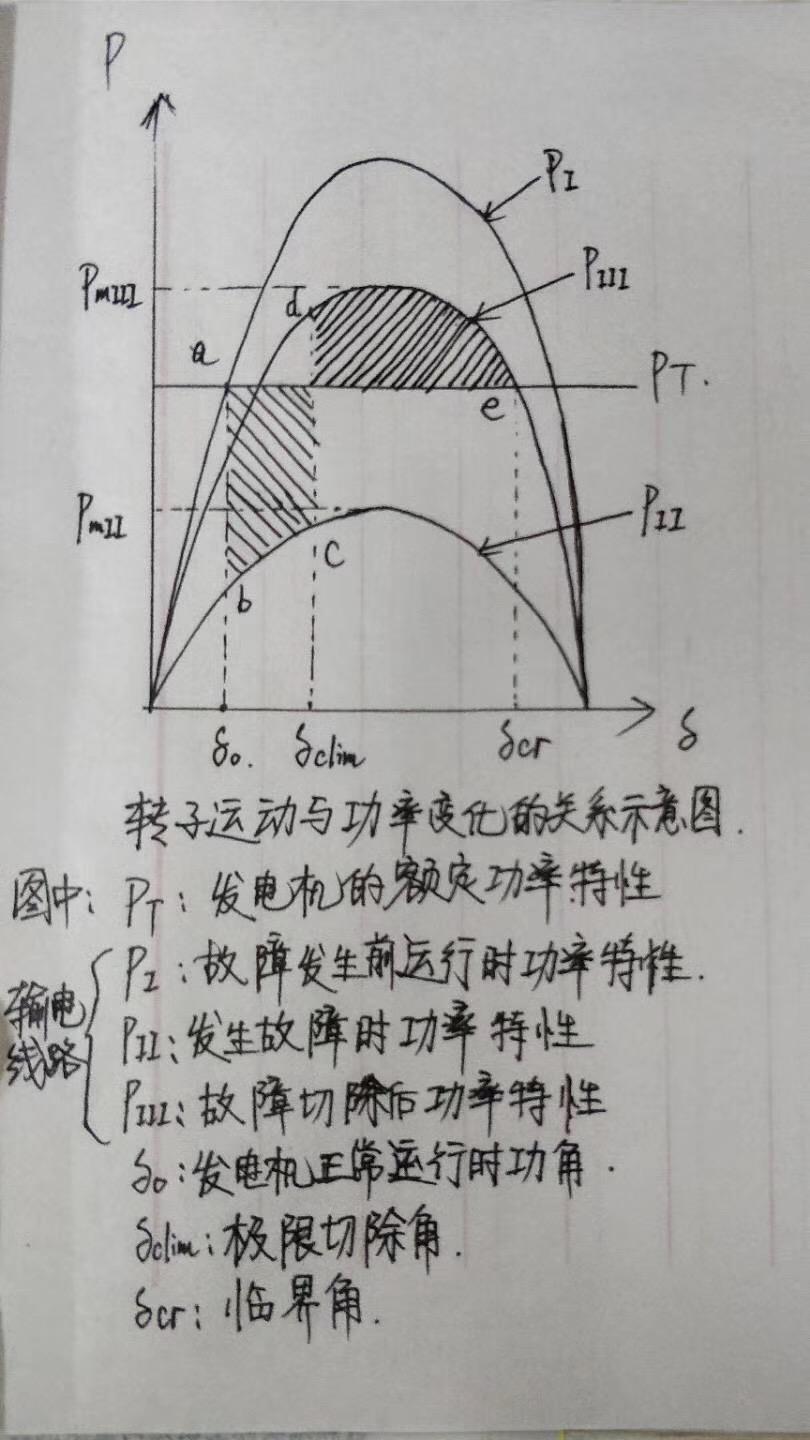 P
P_I
P_mIII
P_III
d
a
P_T.
e
P_mII
P_II
c
b
δ_0.
δ_clim
δ_cr
δ
转子运动与功率变化的关系示意图.
图中: P_T: 发电机的额定功率特性
输电线路
P_I: 故障发生前运行时功率特性.
P_II: 发生故障时功率特性
P_III: 故障切除后功率特性
δ_0: 发电机正常运行时功角.
δ_clim: 极限切除角.
δ_cr: 临界角.